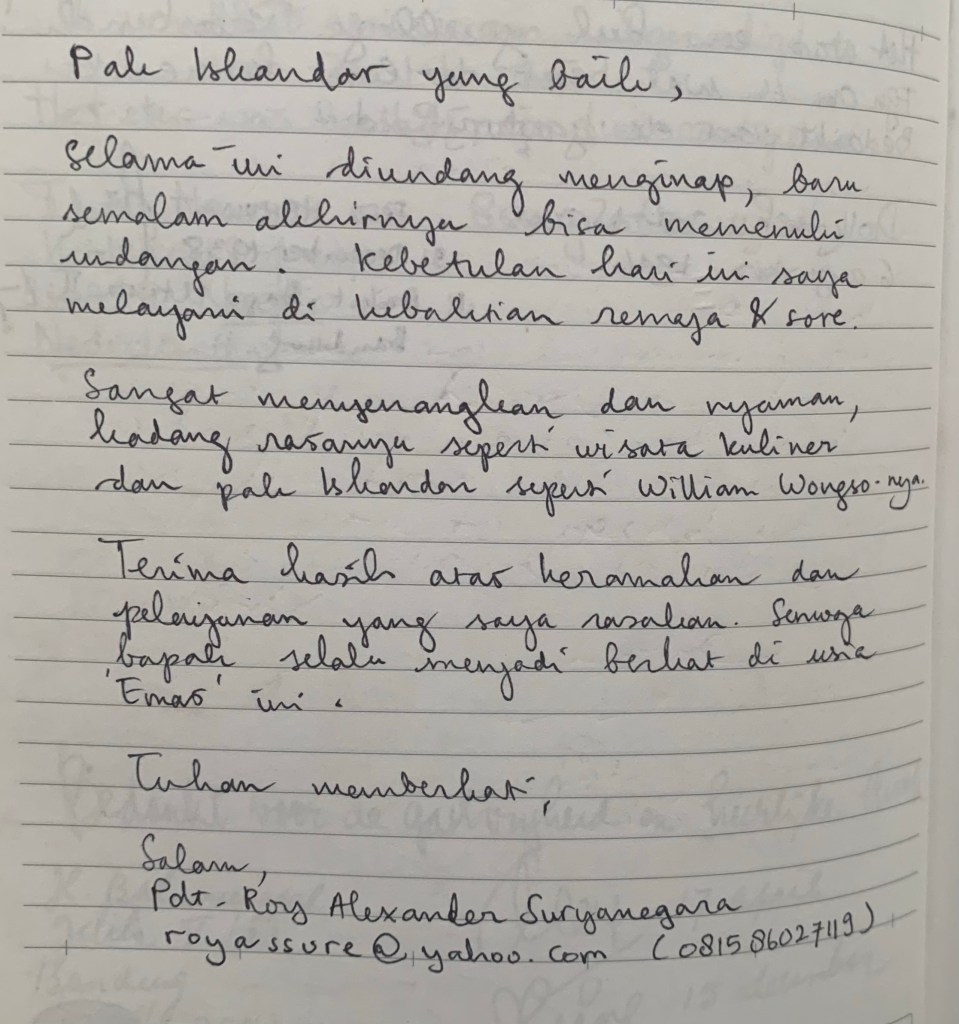 Pak Iskandar yang baik,
Selama ini diundang menginap, baru
semalam akhirnya bisa memenuhi
undangan. Kebetulan hari ini saya
melayani di kebaktian remaja & sore.
Sangat menyenangkan dan nyaman,
kadang rasanya seperti wisata kuliner
dan pak Iskandar seperti William Wongso-nya.
Terima kasih atas keramahan dan
pelayanan yang saya rasakan. Semoga
bapak selalu menjadi berkat di usia
'Emas' ini.
Tuhan memberkati,
Salam,
Pdt. Roy Alexander Suryanegara
royassure@yahoo.com (081586027119)